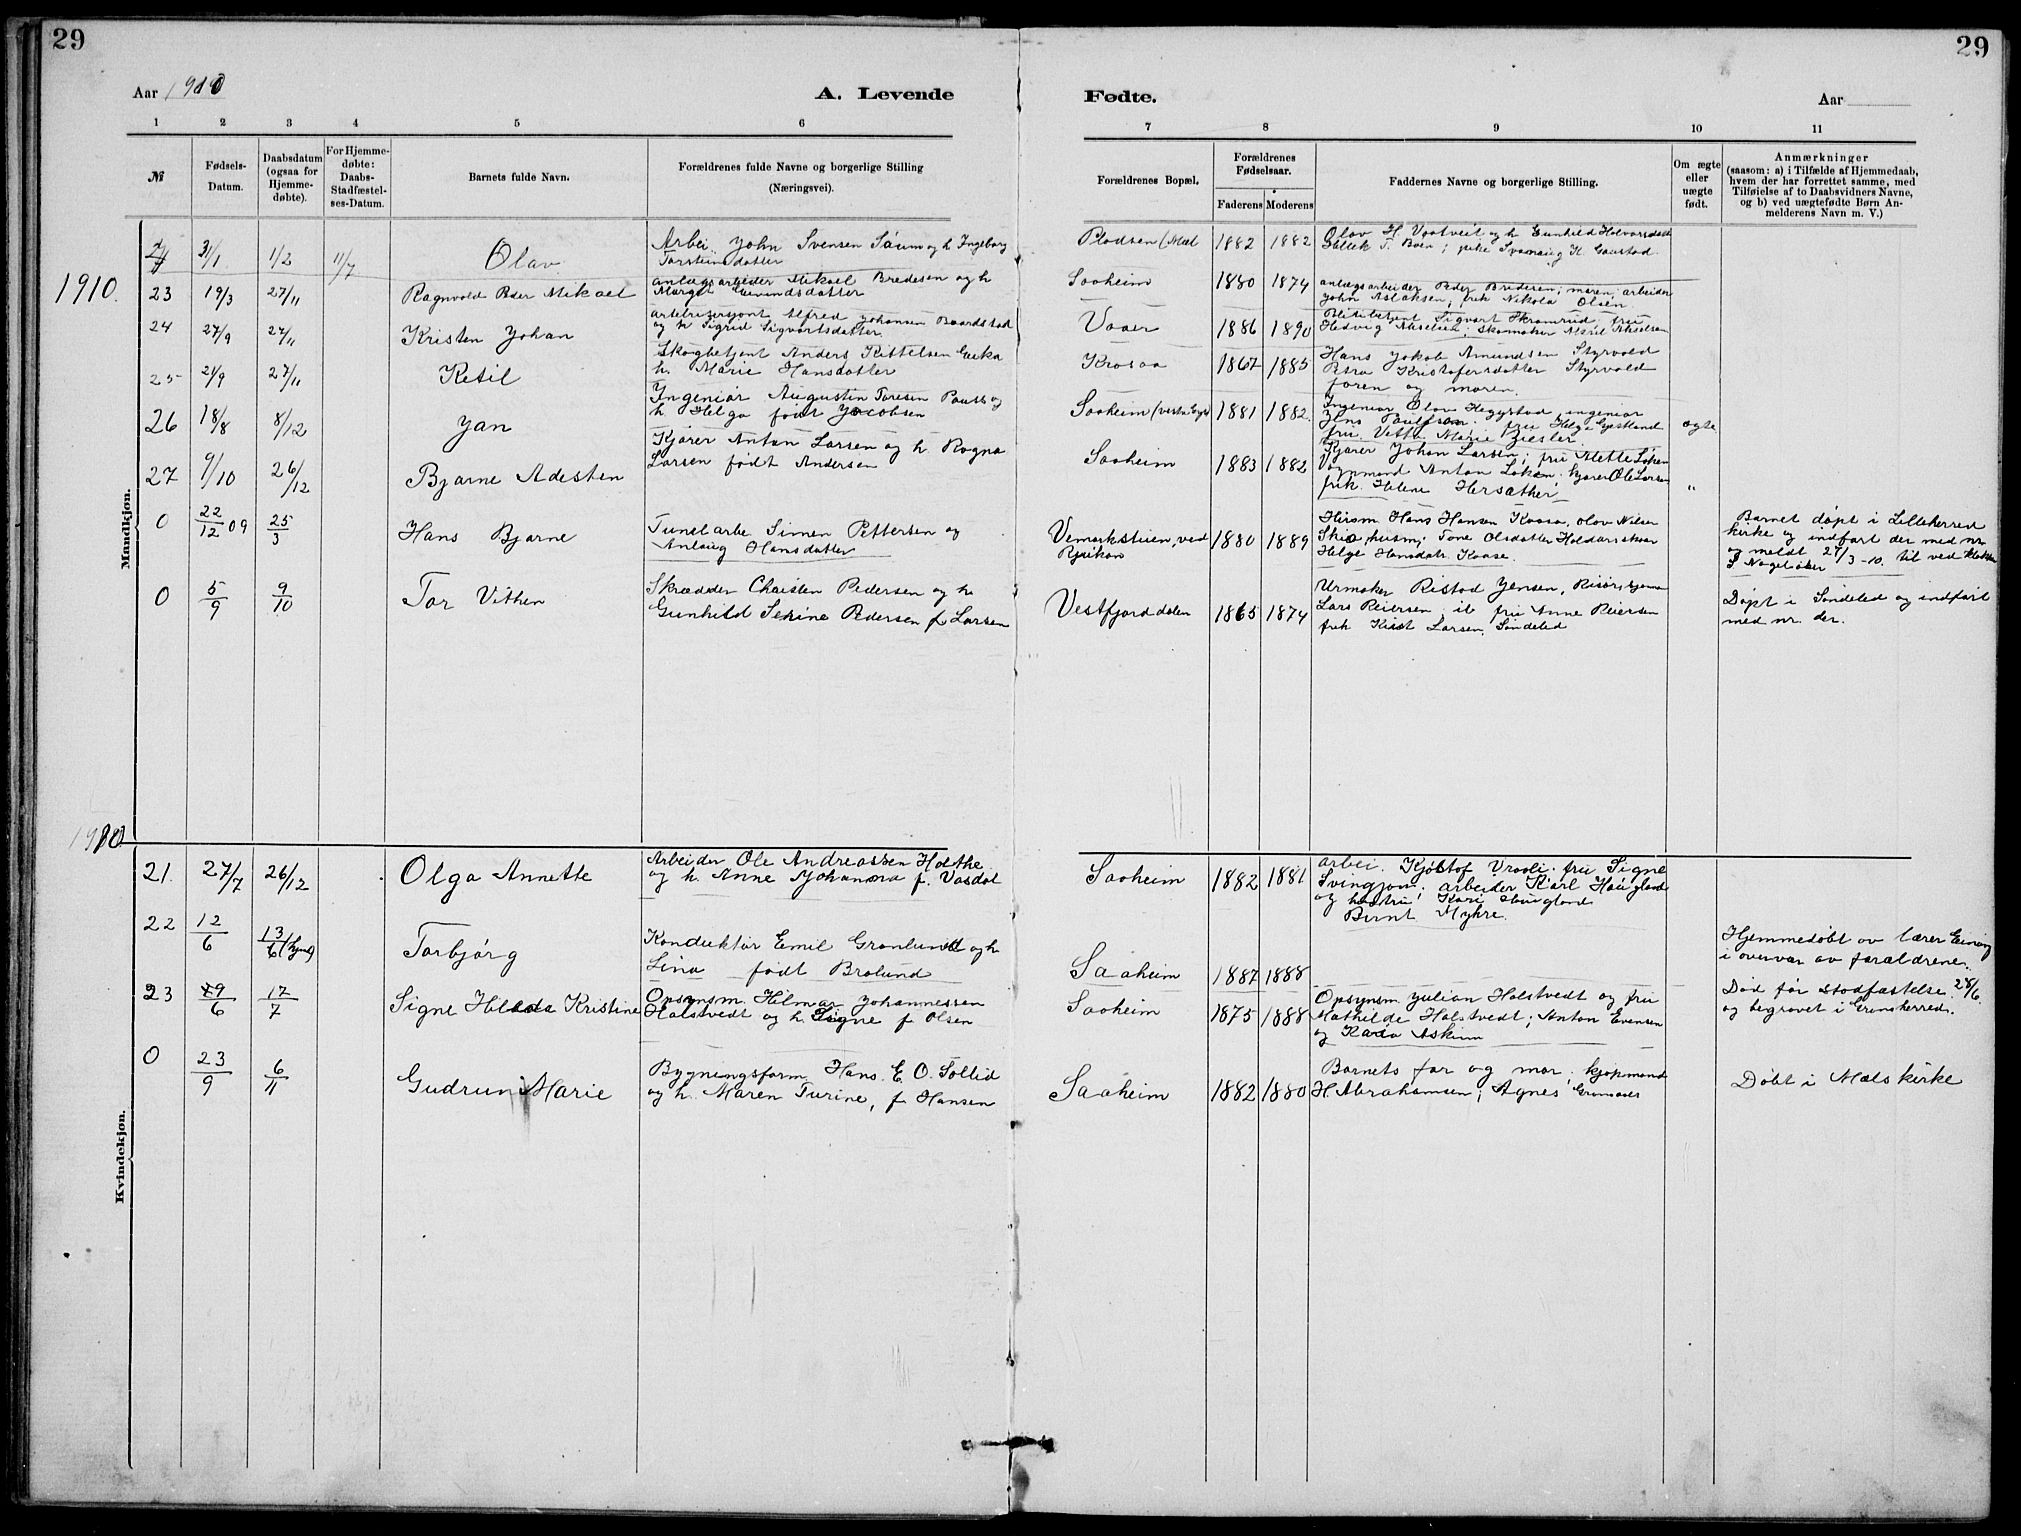 29
29
Aar 1910
A. Levende
Fødte.
Aar
1 2 3 4 5 6
7 8 9 10 11
№
Fødsels-
Datum.
Daabsdatum
(ogsaa for
Hjemme-
døbte).
For Hjemme-
døbte:
Daabs-
Stadfæstel-
ses-Datum.
Barnets fulde Navn.
Forældrenes fulde Navne og borgerlige Stilling
(Næringsvei).
Forældrenes Bopæl.
Forældrenes
Fødselsaar.
Faderens Moderens
Faddernes Navne og borgerlige Stilling.
Om ægte
eller
uægte
født.
Anmærkninger
(saasom: a) i Tilfælde af Hjemmedaab,
hvem der har forrettet samme, med
Tilføielse af to Daabsvidners Navne,
og b) ved uægtefødte Børn An-
melderens Navn m. V.)
Mandkjøn.
1910.
31/1 1/2 11/7 Olav
Arbei. John Svensen Saum og h. Ingeborg
Torsteinsdatter
1882 1882
Olav H. Vaatveit og h. Gunhild Holvorsdatt
T. Boen; pike H. Gaustad.
23 19/3 27/11 Ragnvold Peder Mikael
anlægsarbeider Mikael Bredesen og h.
Margit Eivindsdatter
Saaheim 1880 1874
anlægsarbeider Peder Bredesen; moren, arbeider
John Aslaksen; frk Nikola Olsen
24 27/9 27/11 Kristen Johan
Alfred Johansen Baardstad
og h. Sigrid Sigvartsdatter
Vaaer 1886 1890
Politibetjent Sigvart Skramrud, fru
Hedvig skomaker
25 21/9 27/11 Ketil
Skogbetjent Anders Kittelsen
h. Marie Hansdatter
Krosaa 1867 1885
Hans Jakob Amundsen Styrvold
Petra Kristofersdatter Styrvold
faren og moren.
26 18/8 8/12 Jan
Ingeniør Augustin Toresen Pauss og
h. Helga født Jacobsen
Saaheim 1881 1882.
Ingeniør Olav Heggstad, ingeniør
Jens fru Helga
fru. Marie Ziesler. ægte
27 9/10 26/12 Bjarne Adesten
Kjører Anton Larsen og h. Ragna
Larsen født Andersen
Saaheim 1883 1882
Kjører Johan Larsen; fru Mette Løken
Vognmand Anton Løken; kjører Ole Larsen
frk. Helene Hersæther "
0 22/12 09 25/3 Hans Bjarne
Tunelarbe Simen Pettersen og
Anlaug Hansdatter
Vemorkstien, ved
Rjukan
1880 1889
Hans Hansen Kaasa, Olov Nilsen
husm; Tone Olsdatter
Helge Hansdatr Kaase.
Barnet døpt i Lilleherred
kirke og indført der med nr
og meldt 21/3-10. til ved
0 5/9 9/10 Tor Vithen
Skrædder Christen Pedersen og h.
Gunhild Serine Pedersen f. Larsen
Vestfjorddalen 1865 1874
Urmaker Ristad Jensen, Risør,
Lars Reiersen, ib fru Anne Reiersen
frk Larsen, Søndeled
Døpt i Søndeled og indført
med nr. der.
1910
Kvindekjøn.
21. 27/7 26/12 Olga Annette
Arbeider Ole Andreassen Holthe
og h. Anne Johanna f. Vasdal
Saaheim 1882 1881
arbei. Vraali, fru Signe
Svingjom; arbeider Karl Haugland
og hustru Kari Haugland
Bernt Myhre.
22 12/6 13/6 (hjem) Torbjørg
Konduktør Emil Grønlund og h.
Lina født Brolund
Saaheim 1887 1888
Hjemmedøbt av lærer
i overvær av forældrene.
23 29/6 17/7 Signe Hilda Kristine
Opsynsm. Hilmar Johannessen
Halstvedt og h. Signe f. Olsen
Saaheim 1875 1888
Opsynsm Julian Holstvedt og fru
Mathilde Holstvedt; Anton Evensen
og Kaia Askim
Død før stadfæstelse 28/6.
og begravet i Grønskerred.
0 23/9 6/11 Gudrun Marie
Bygningsform. Hans E. O. Sollid
og h. Maren Turine, f. Hansen
Saaheim 1882 1880
Barnets far og mor, kjøpmand
H. Abrahamsen; Agnes
Døbt i Mæls kirke